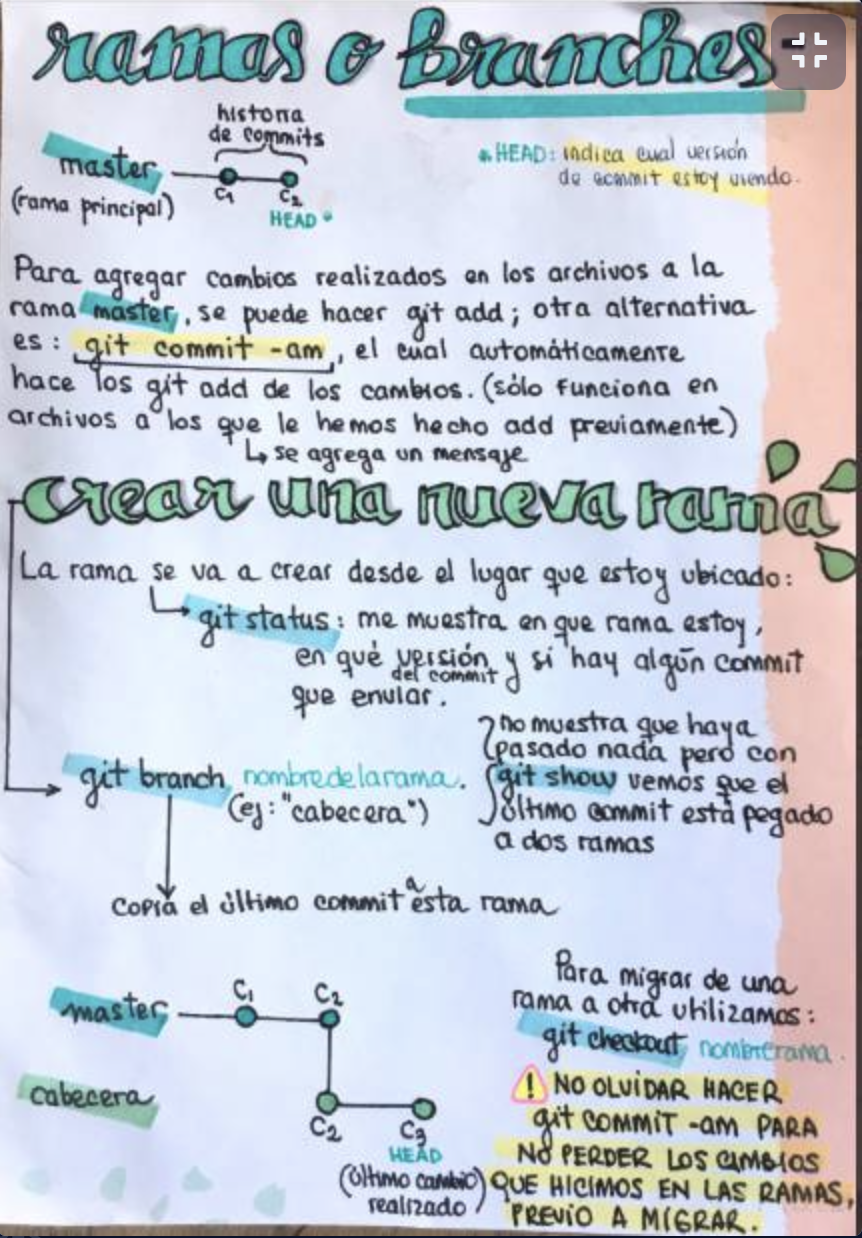 ramas o branches
historia
de commits
master
(rama principal)
C1
C2
HEAD *
* HEAD: indica cual versión
de commit estoy viendo.
Para agregar cambios realizados en los archivos a la
rama master, se puede hacer git add; otra alternativa
es: git commit -am, el cual automáticamente
hace los git add de los cambios. (sólo funciona en
archivos a los que le hemos hecho add previamente)
↳ se agrega un mensaje
crear una nueva rama
La rama se va a crear desde el lugar que estoy ubicado:
git status: me muestra en que rama estoy,
en qué versión y si hay algún commit
del commit
que enviar.
git branch nombredelarama.
(ej: "cabecera")
no muestra que haya
pasado nada pero con
git show vemos que el
último commit está pegado
a dos ramas
copia el último commit a esta rama
master
C1
C2
cabecera
C2
C3
HEAD
(último cambio)
realizado
Para migrar de una
rama a otra utilizamos:
git checkout nombrerama.
! NO OLVIDAR HACER
git COMMIT -am PARA
NO PERDER LOS CAMBIOS
QUE HICIMOS EN LAS RAMAS,
PREVIO A MIGRAR.